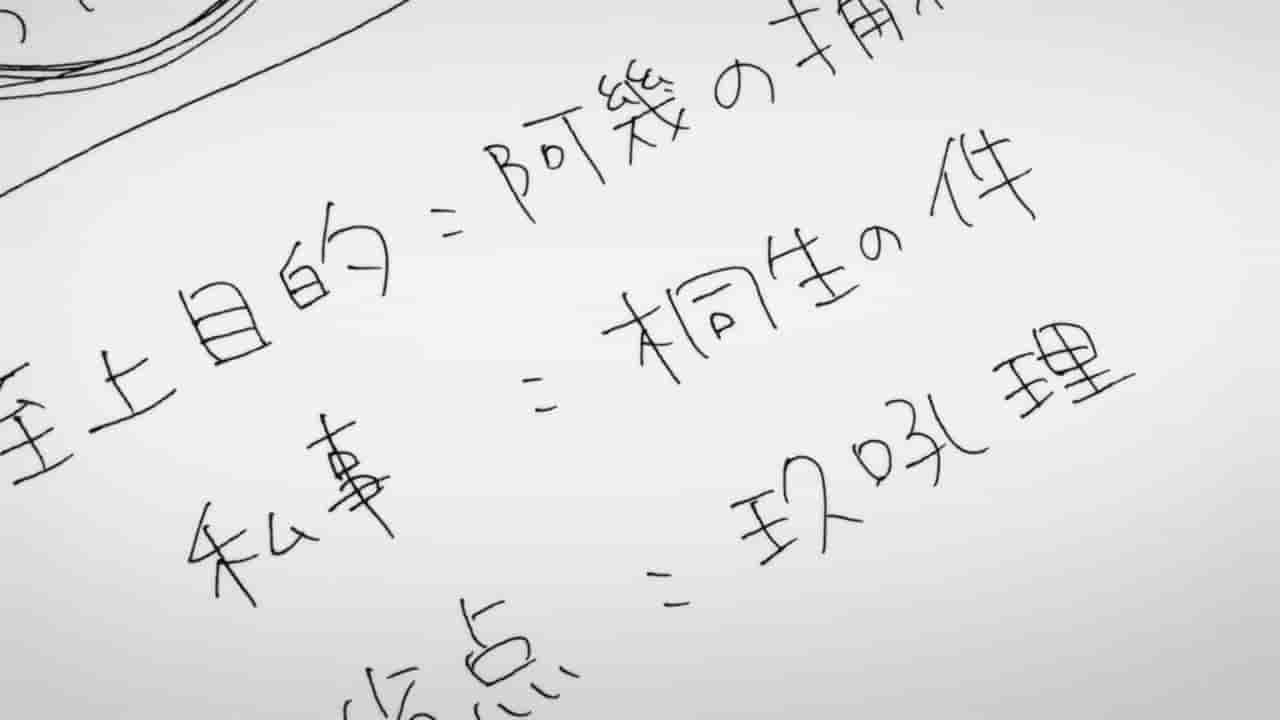 至上目的=阿幾の捕
私事=桐生の件
点=玖吼理